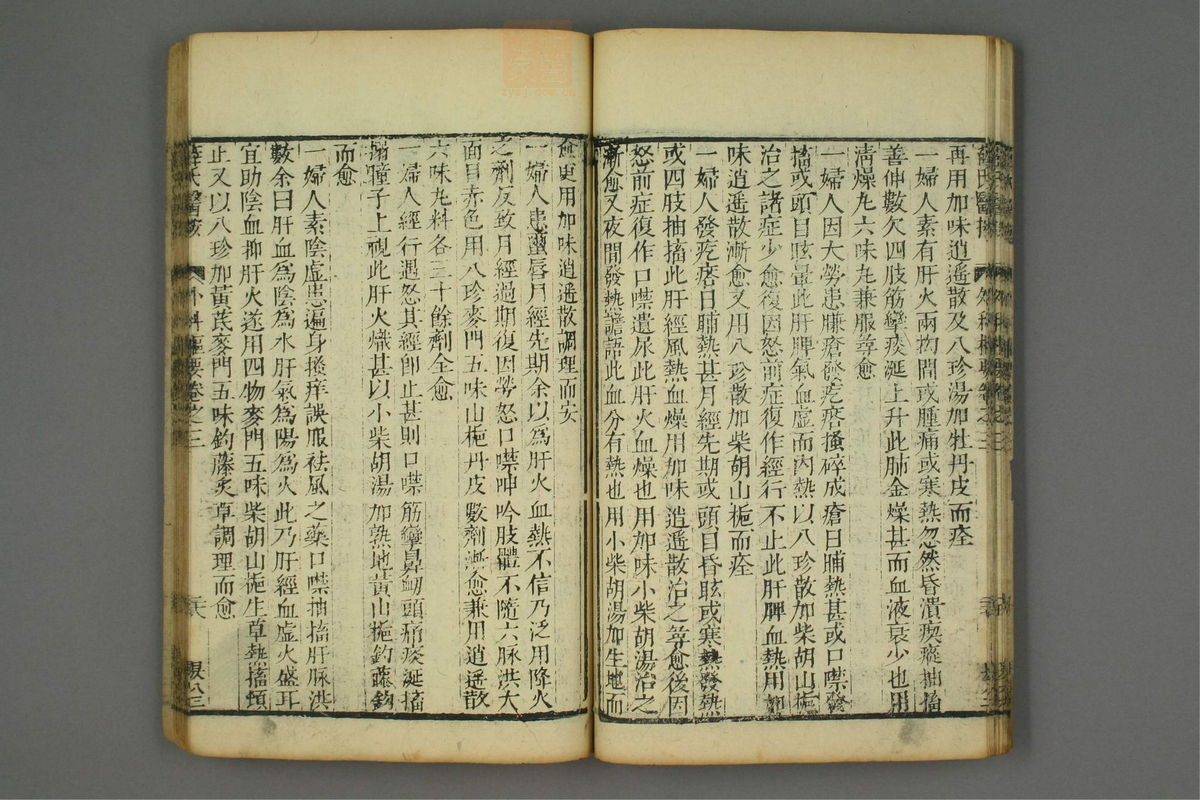 再用加味逍遙散及八珍湯加牡丹皮而痊
一婦人素有肝火兩拗間或腫痛或寒熱忽然昏潰瘈瘲抽搐
善伸數欠四肢筋攣痰涎上升此肺金燥甚而血液衰少也用
清燥丸六味丸兼服尋愈
一婦人因大勞患臁瘡發疙瘩搔碎成瘡日晡熱甚或口噤發
搐或頭目眩暈此肝脾氣血虛而內熱以八珍散加柴胡山梔
治之諸症少愈復因怒前症復作經行不止此肝脾血熱用加
味逍遙散漸愈又用八珍散加柴胡山梔而痊
一婦人發疙瘩日晡熱甚月經先期或頭目昏眩或寒熱發熱
或四肢抽搐此肝經風熱血燥用加味逍遙散治之尋愈後因
怒前症復作口噤遺尿此肝火血燥也用加味小柴胡湯治之
漸愈又夜間發熱譫語此血分有熱也用小柴胡湯加生地而
愈更用加味逍遙散調理而安
一婦人患繭唇月經先期余以為肝火血熱不信乃泛用降火
之劑反致月經過期復因勞怒口噤呻吟肢體不隨六脉洪大
面目赤色用八珍麥門五味山梔丹皮數劑漸愈兼用逍遙散
六味丸料各三十餘劑全愈
一婦人經行遇怒其經卽止甚則口噤筋攣鼻衂頭痛痰涎搐
搦瞳子上視此肝火熾甚以小柴胡湯加熟地黃山梔鈎藤鈎
而愈
一婦人素陰虛患遍身搔痒誤服祛風之藥口噤抽搐肝脉洪
數余曰肝血為陰為水肝氣為陽為火此乃肝經血虛火盛耳
宜助陰血抑肝火遂用四物麥門五味柴胡山梔生草熱搐頓
止又以八珍加黃芪麥門五味鈎藤炙草調理而愈
薛氏醫按 外科樞要卷之三